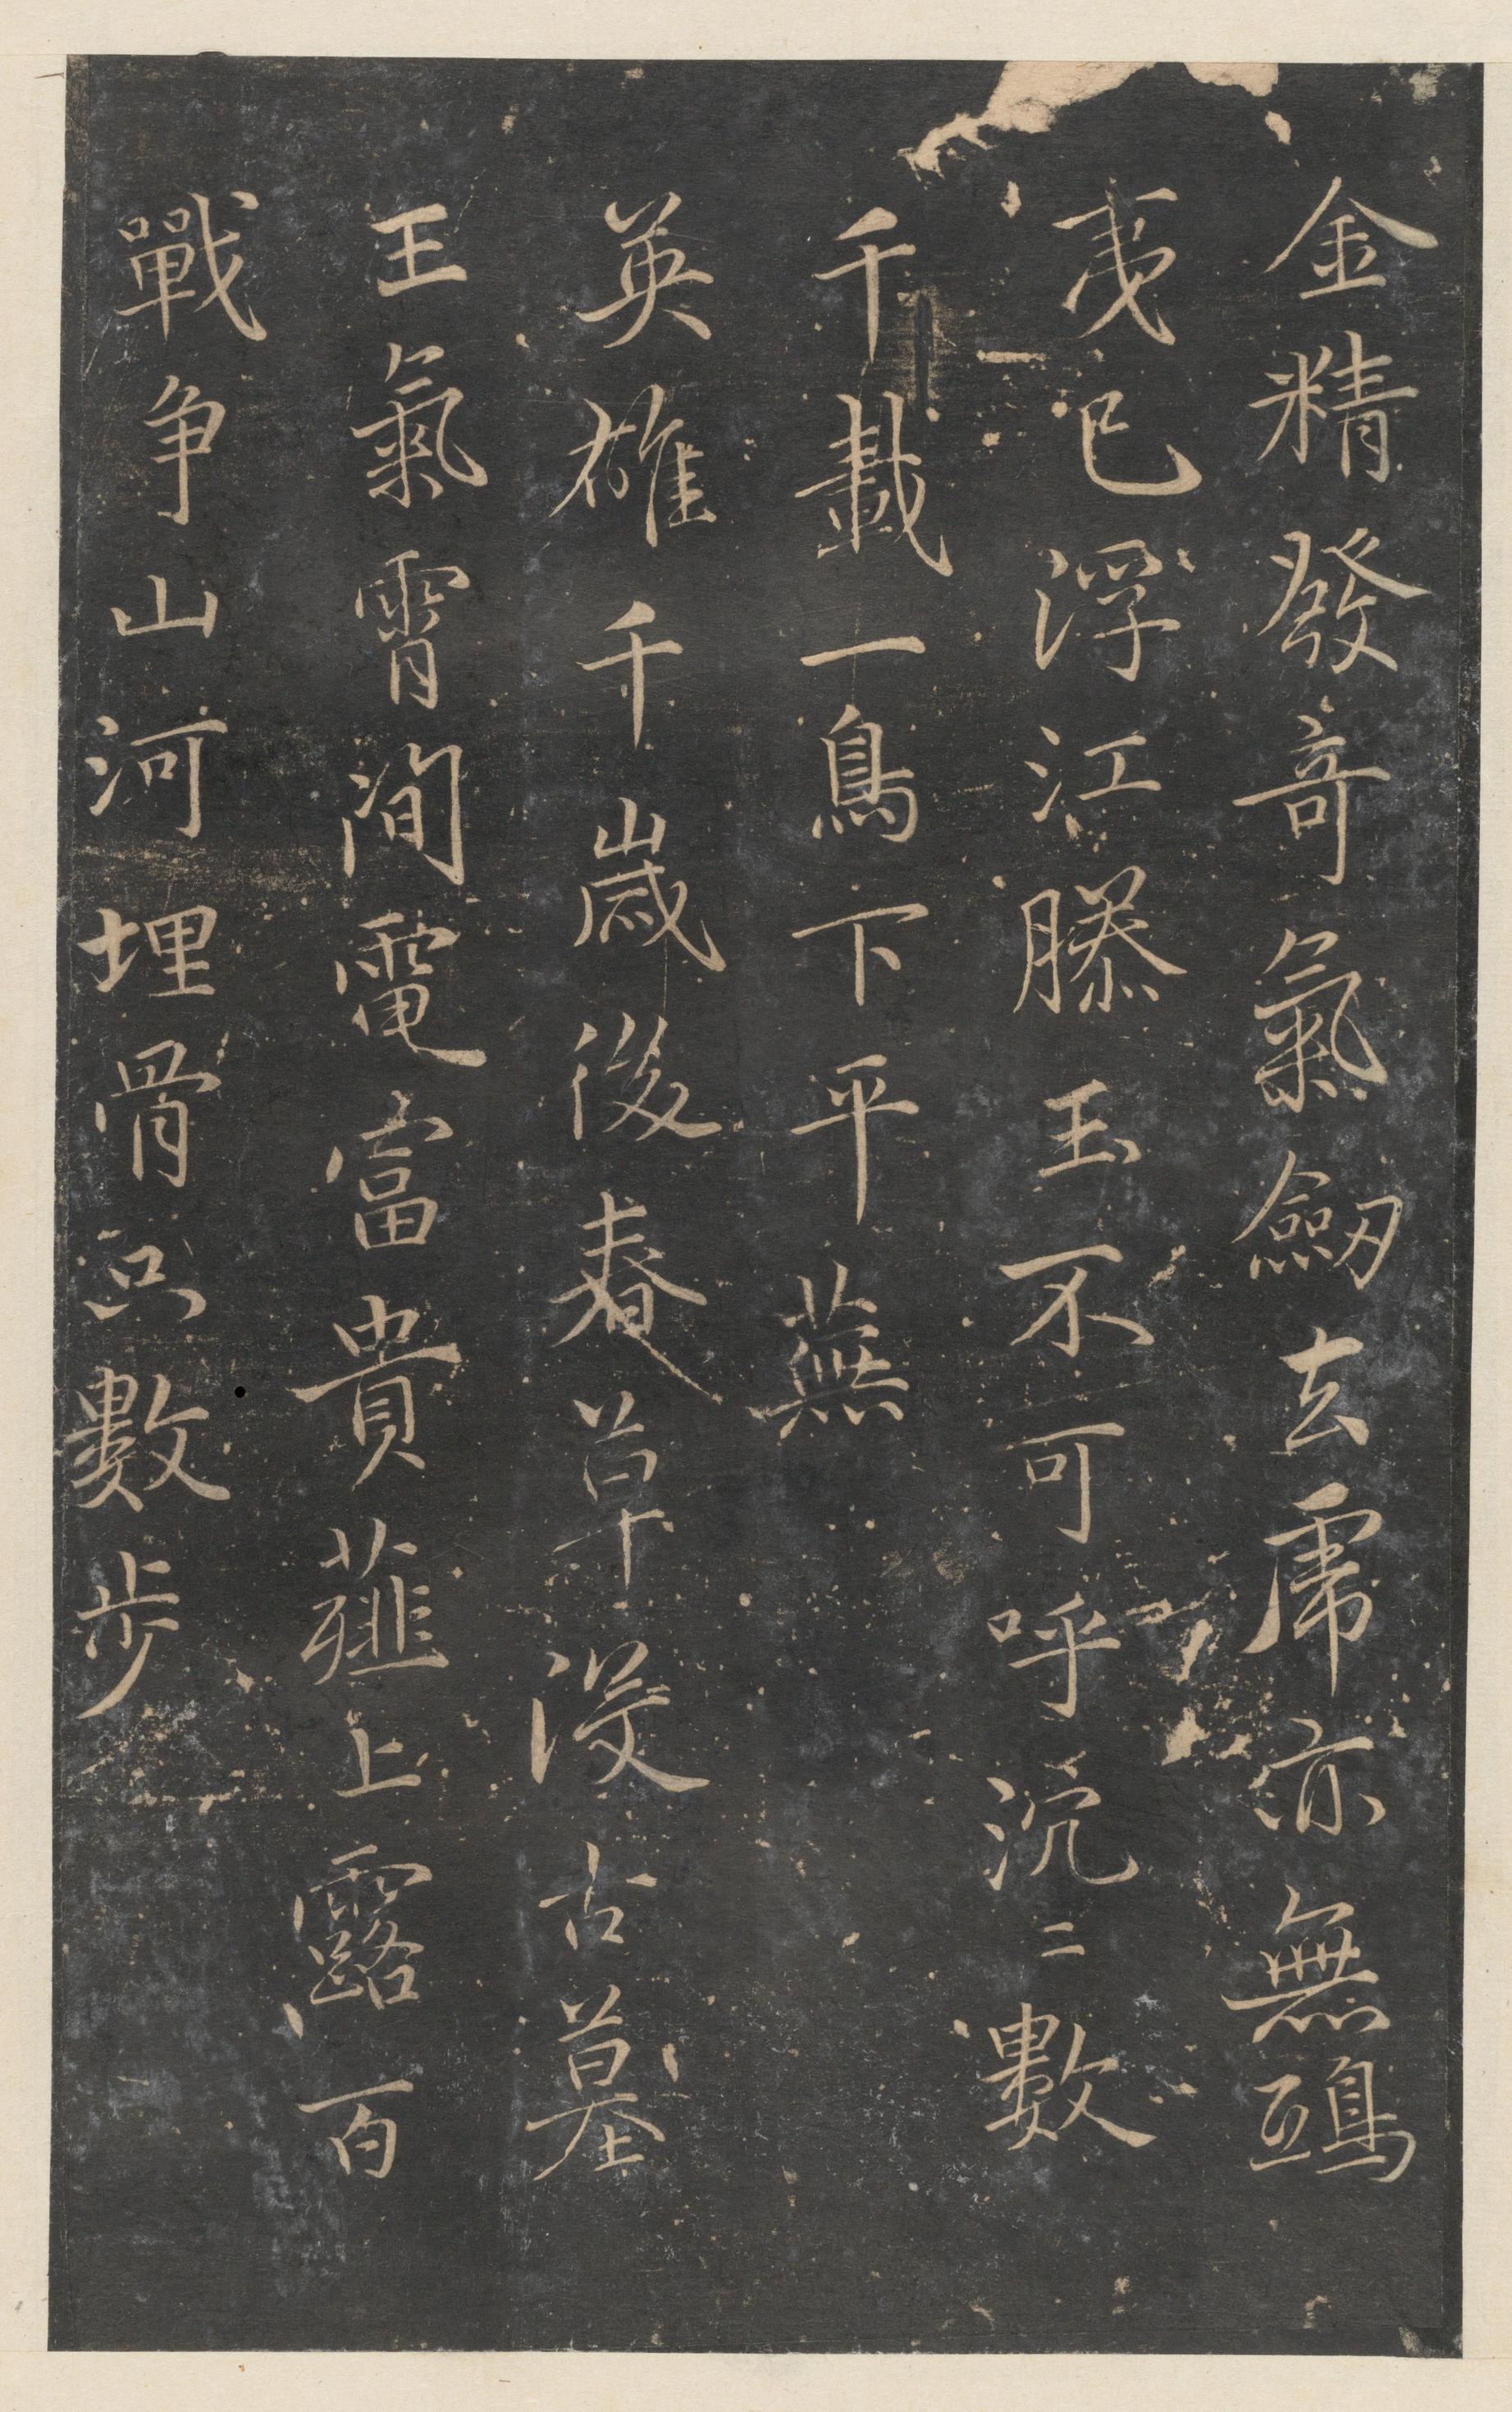 金精發奇氣劒去虎亦無鴟
夷已浮江騰玉不可呼沉二數
千載一鳥下平蕪
英雄千歲後春草沒古墓
王氣霄間電富貴薤上露百
戰爭山河埋骨只數步